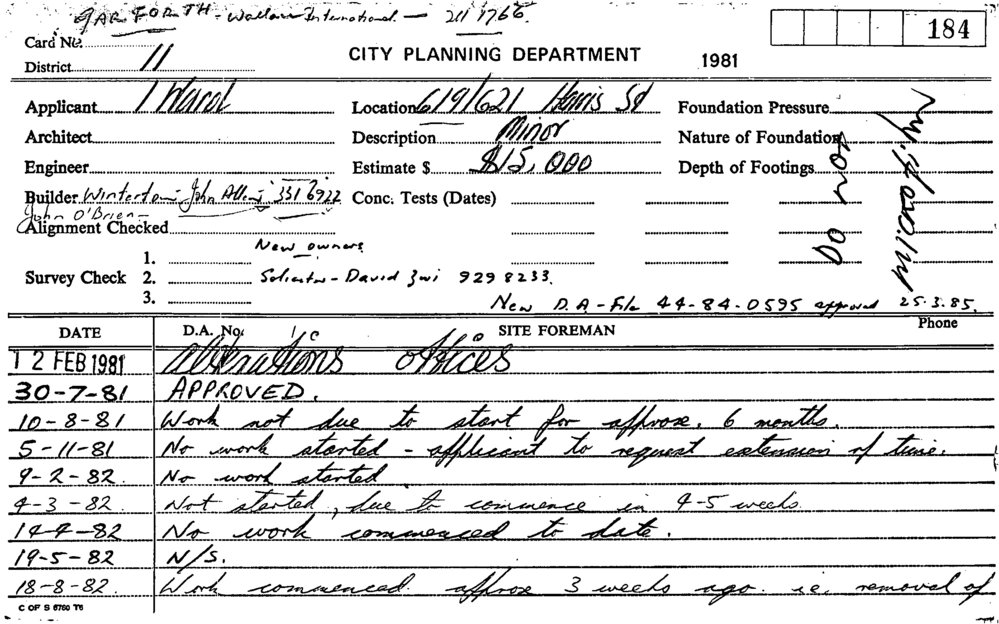 GARFORTH - Wallace International - 211 1766
184
Card No.
District 11
CITY PLANNING DEPARTMENT 1981
Applicant Location 619/621 Harris St Foundation Pressure
Architect Description Minor Nature of Foundation
Engineer Estimate $ $15,000 Depth of Footings
Builder Winterton - John Allen 331 6922 Conc. Tests (Dates)
John O'Brien -
Alignment Checked
Do not
1. New owners
Survey Check 2. Solicitor - David Zwi 929 8233.
3. New D.A - File 44-84-0595 approved 25.3.85.
DATE D.A. No. SITE FOREMAN Phone
12 FEB 1981 alterations offices
30-7-81 APPROVED.
10-8-81 Work not due to start for approx. 6 months.
5-11-81 No work started - applicant to request extension of time.
9-2-82. No work started
4-3-82. Not started, due to commence in 4-5 weeks.
14-4-82 No work commenced to date.
19-5-82 N/S.
18-8-82. Work commenced approx 3 weeks ago. i.e. removal of
C OF S 6760 T6